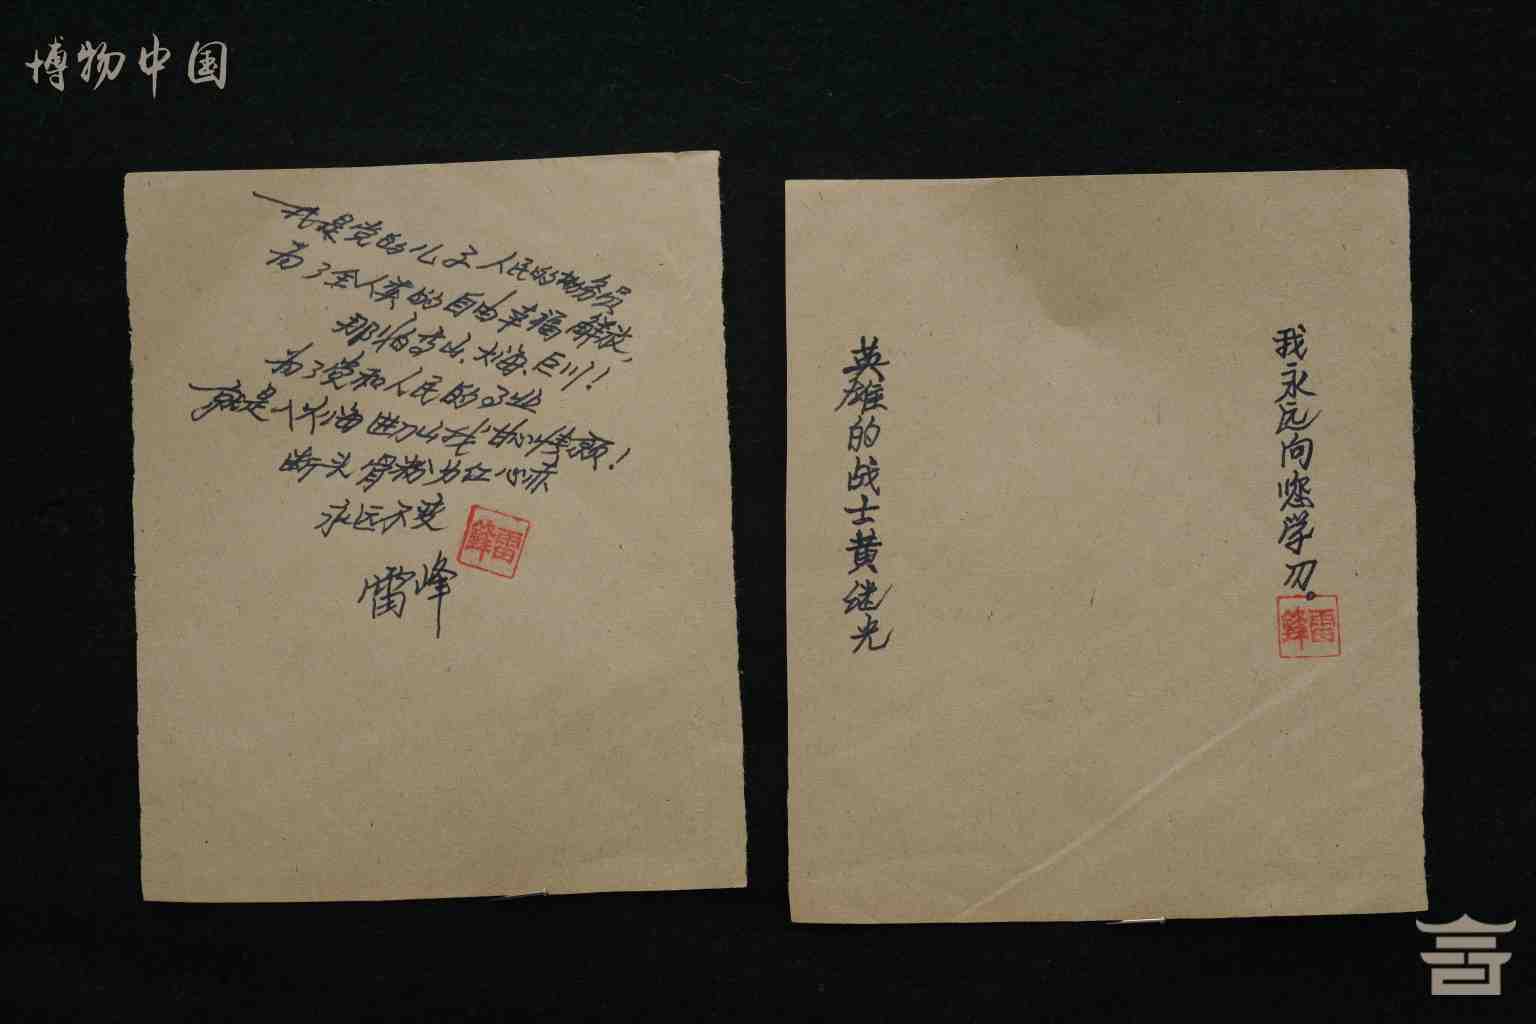 博物中国
我是党的儿子人民的勤务员
为了全人类的自由幸福解放,
那怕高山、大海、巨川!
为了党和人民的事业
就是入火海进刀山我甘心情愿!
断头骨粉身红心赤
永远不变
雷锋
雷峰
英雄的战士黄继光
我永远向您学习。
雷锋